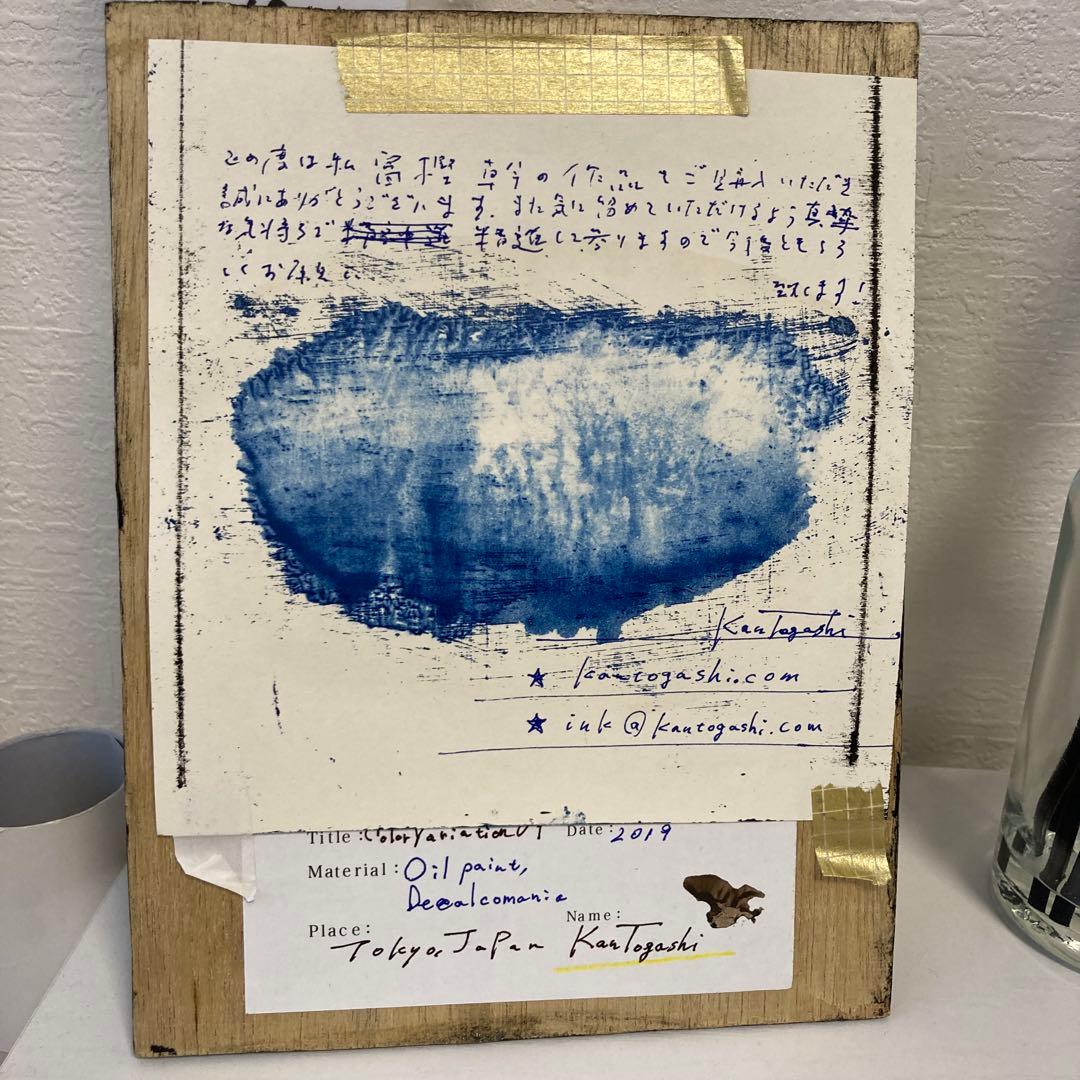 この度は私 富樫 草今の作品をご購入いただき
誠にありがとうございます。また気に留めていただけるよう真摯
な気持ちで 精進して参りますので今後ともよろ
しくお願い
致します!
KanTogashi
★ kantogashi.com
★ ink@kantogashi.com
Title: Color Variation VI Date: 2019
Material: Oil paint,
Decalcomania
Place: Name:
Tokyo, Japan KanTogashi